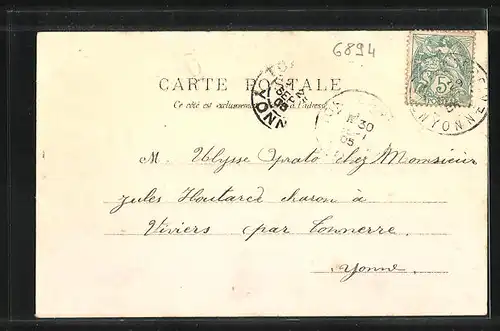 6894
CARTE POSTALE
Ce côté est exclusivement à l'adresse
5c
YONNE
YONNE
30
05
M. Ulysse Prato chez Momsieur
Jules Houtarcé charon à
Viviers (par Tonnerre.
Yonne.